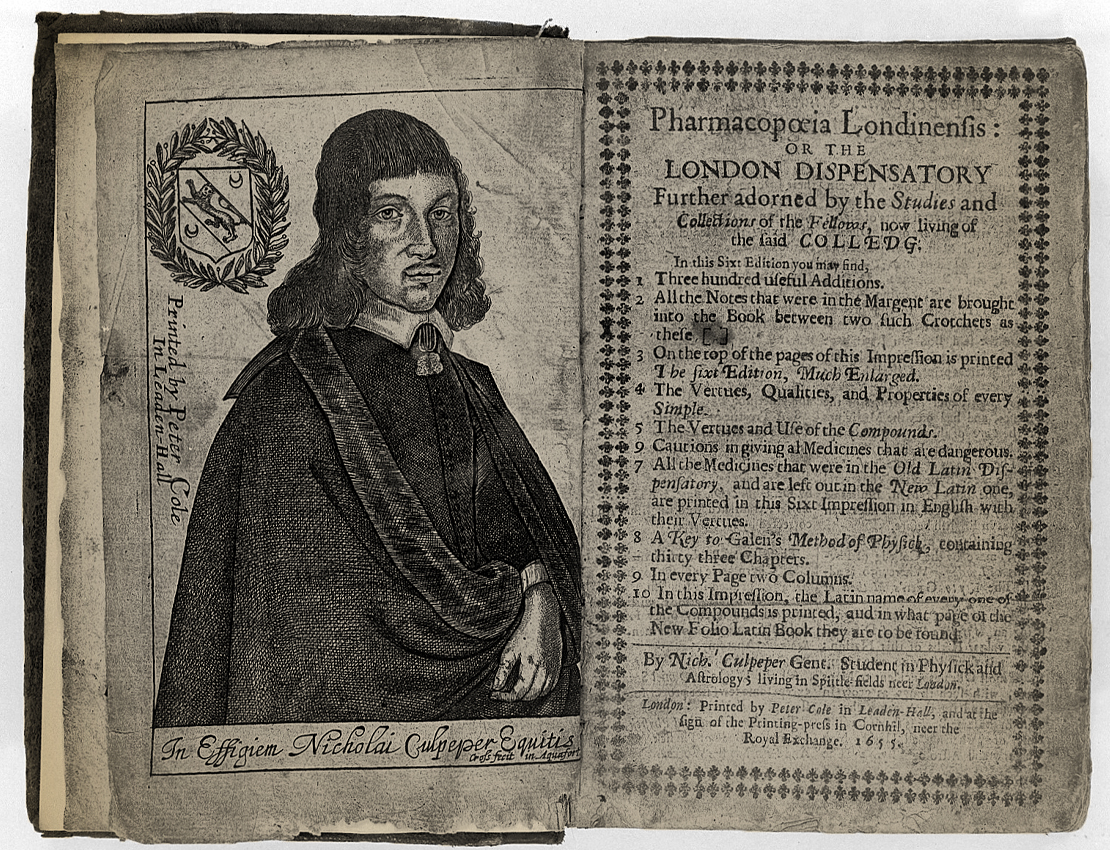 Printed by Peter Cole
In Leaden-Hall
In Effigiem Nicholai Culpeper Equitis
Cross fecit in Aquafort
Pharmacopœia Londinenſis :
OR THE
LONDON DISPENSATORY
Further adorned by the Studies and
Collections of the Fellows, now living of
the ſaid COLLEDG.
In this Sixt Edition you may find,
1 Three hundred uſeful Additions.
2 All the Notes that were in the Margent are brought
into the Book between two ſuch Crotchets as
theſe [ ]
3 On the top of the pages of this Impreſſion is printed
The ſixt Edition, Much Enlarged.
4 The Vertues, Qualities, and Properties of every
Simple.
5 The Vertues and Uſe of the Compounds.
9 Cautions in giving al Medicines that are dangerous.
7 All the Medicines that were in the Old Latin Diſ-
penſatory, and are left out in the New Latin one,
are printed in this Sixt Impreſſion in Engliſh with
their Vertues.
8 A Key to Galen's Method of Phyſick, containing
thirty three Chapters.
9 In every Page two Columns.
10 In this Impreſſion, the Latin name of every one of
the Compounds is printed, and in what page of the
New Folio Latin Book they are to be found.
By Nich. Culpeper Gent. Student in Phyſick and
Aſtrology; living in Spittle-fields neer London.
London: Printed by Peter Cole in Leaden-Hall, and at the
ſign of the Printing-preſs in Cornhil, neer the
Royal Exchange. 1655.